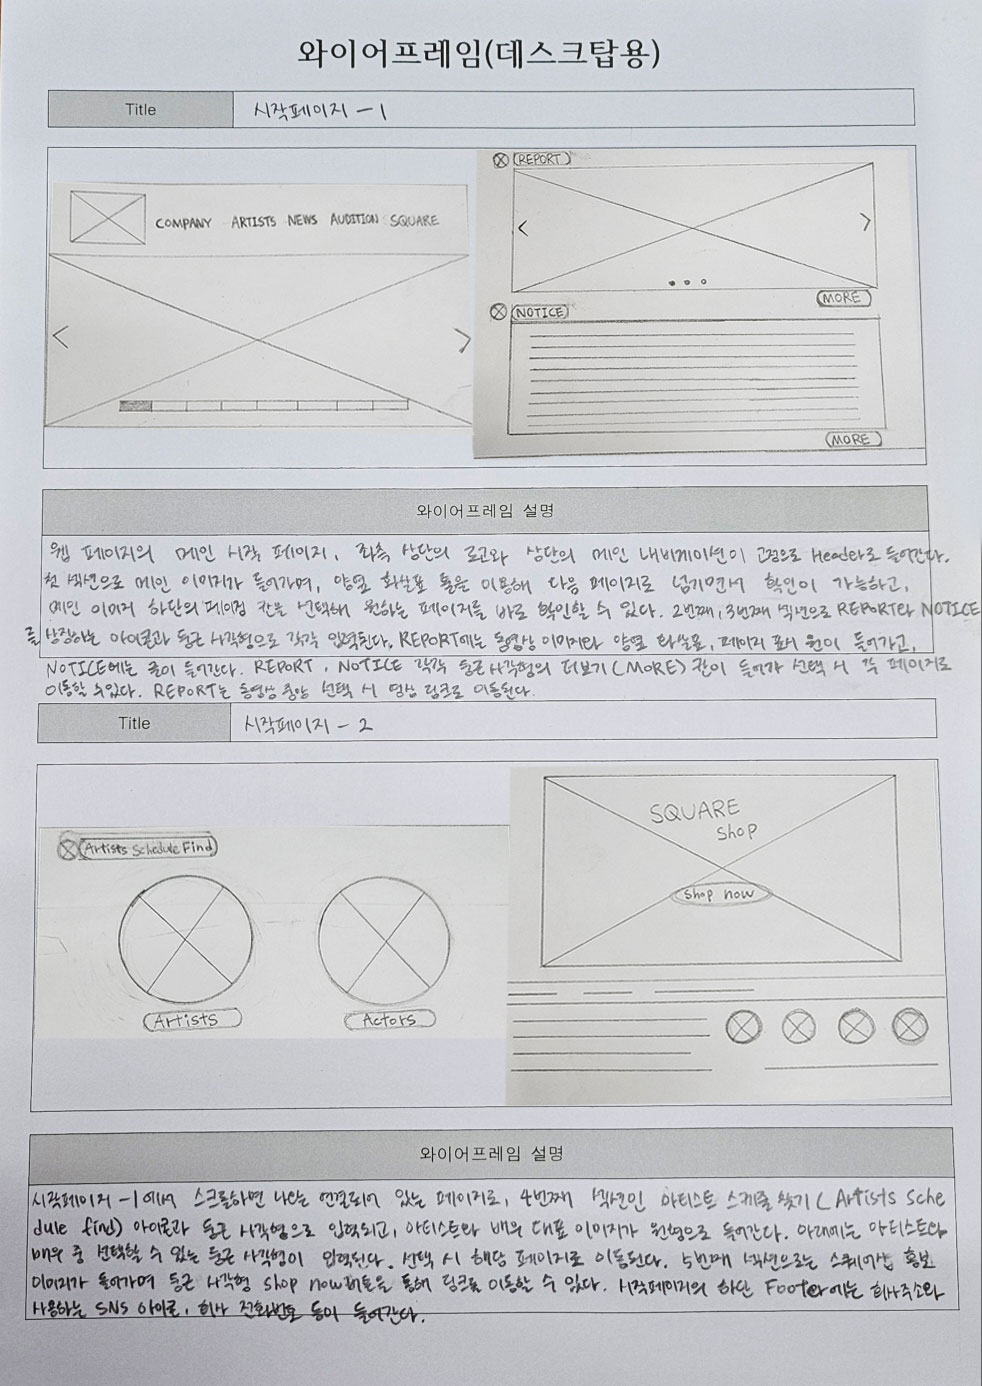 와이어프레임(데스크탑용)
Title
시작페이지 - 1
COMPANY ARTISTS NEWS AUDITION SQUARE
REPORT
MORE
NOTICE
MORE
와이어프레임 설명
웹 페이지의 메인 시작 페이지, 좌측 상단의 로고와 상단의 메인 내비게이션이 고정으로 Header로 들어간다.
첫 섹션으로 메인 이미지가 들어가며, 양옆 화살표 툴을 이용해 다음 페이지로 넘기면서 확인이 가능하고,
메인 이미지 하단의 페이징 칸을 선택해 원하는 페이지를 바로 확인할 수 있다. 2번째, 3번째 섹션으로 REPORT와 NOTICE
를 상징하는 아이콘과 둥근 사각형으로 각각 입력된다. REPORT에는 동영상 이미지와 양옆 화살표, 페이지 표시 원이 들어가고,
NOTICE에는 글이 들어간다. REPORT, NOTICE 각각 둥근사각형의 더보기(MORE) 칸이 들어가 선택 시 각 페이지로
이동할 수있다. REPORT는 동영상 중앙 선택 시 영상 링크로 이동된다.
Title
시작페이지 - 2
Artists Schedule Find
Artists
Actors
SQUARE
shop
shop now
와이어프레임 설명
시작페이지 -1에서 스크롤하면 나오는 연결되어 있는 페이지로, 4번째 섹션인 아티스트 스케줄 찾기( Artists Sche
dule find) 아이콘과 둥근 사각형으로 입력되고, 아티스트와 배우 대표 이미지가 원형으로 들어간다. 아래에는 아티스트와
배우 중 선택할 수 있는 둥근 사각형이 입력된다. 선택 시 해당 페이지로 이동된다. 5번째 섹션으로는 스퀘어샵 홍보
이미지가 들어가며 둥근 사각형 shop now버튼을 통해 링크로 이동할 수 있다. 시작페이지의 하단 Footer에는 회사주소와
사용하는 SNS 아이콘, 회사 전화번호 등이 들어간다.